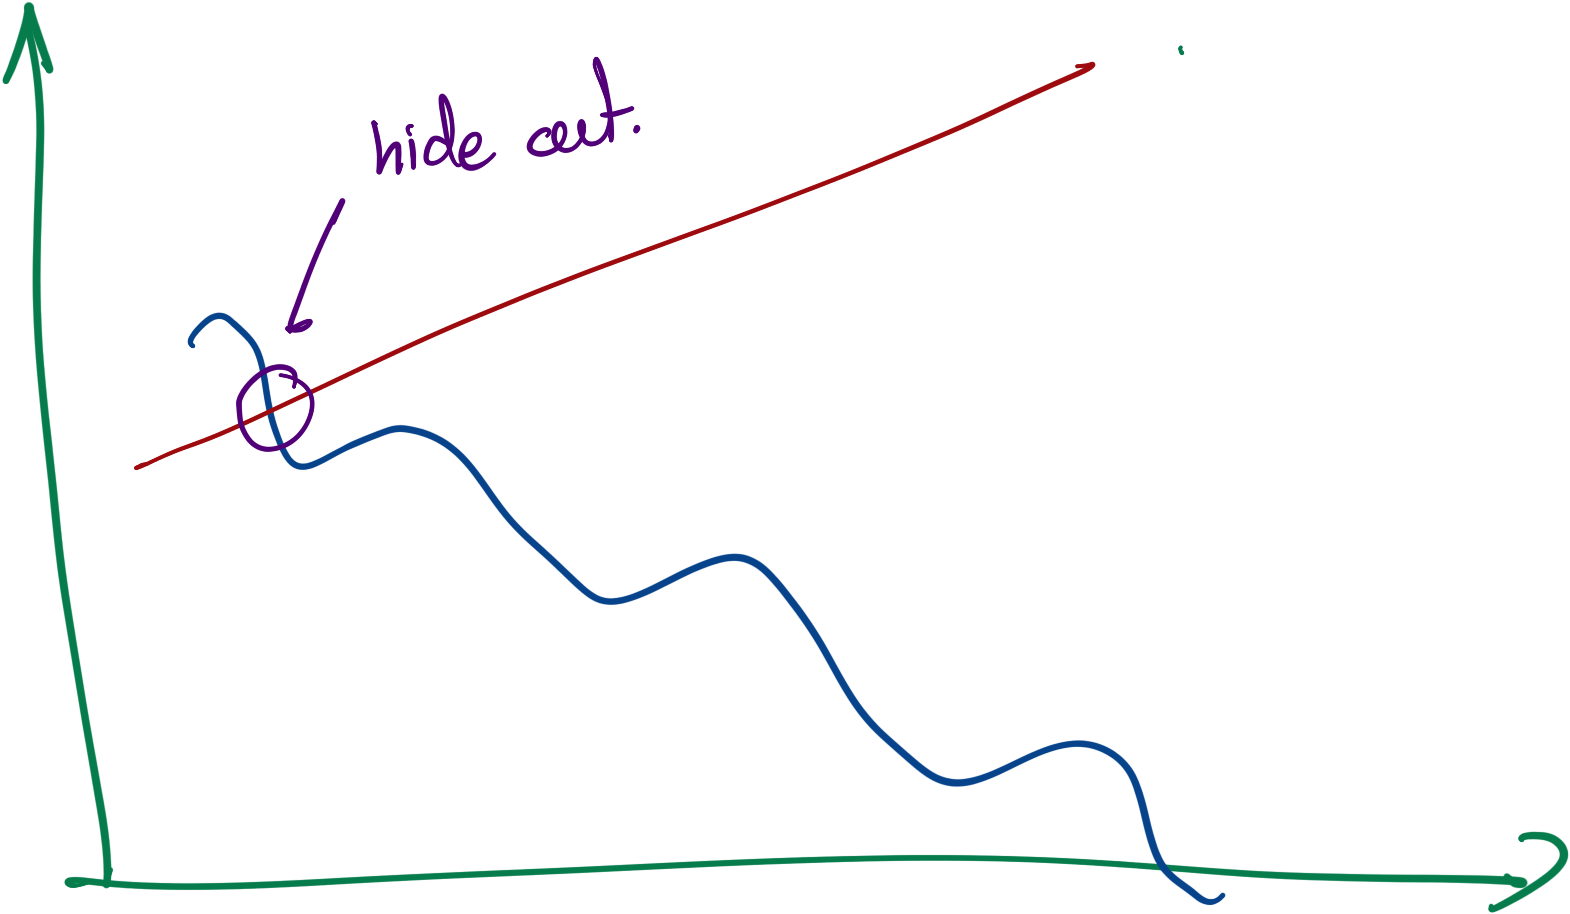 hide out.